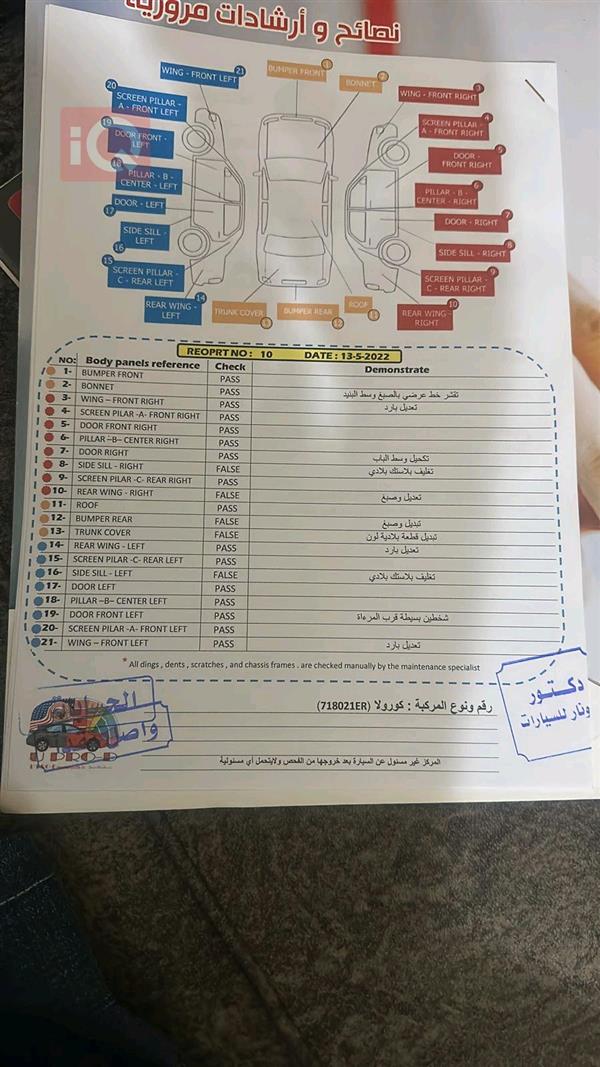 نصائح و أرشادات مرورية
WING - FRONT LEFT 21
BUMPER FRONT 1
BONNET 2
WING - FRONT RIGHT 3
20 SCREEN PILLAR -
A - FRONT LEFT
SCREEN PILLAR - 4
A - FRONT RIGHT
19 DOOR FRONT -
LEFT
iQ
DOOR - 5
FRONT RIGHT
18 PILLAR - B -
CENTER - LEFT
PILLAR - B - 6
CENTER - RIGHT
DOOR - LEFT
17
DOOR - RIGHT 7
SIDE SILL -
LEFT
16
SIDE SILL - RIGHT 8
15 SCREEN PILLAR -
C - REAR LEFT
SCREEN PILLAR - 9
C - REAR RIGHT
REAR WING - 14
LEFT
TRUNK COVER
BUMPER REAR 12
ROOF 11
REAR WING - 10
RIGHT
REOPRT NO : 10 DATE : 13-5-2022
NO: Body panels reference Check Demonstrate
1- BUMPER FRONT PASS
2- BONNET PASS تقشر خط عرضي بالصبغ وسط البنيد
3- WING – FRONT RIGHT PASS تعديل بارد
4- SCREEN PILAR -A- FRONT RIGHT PASS
5- DOOR FRONT RIGHT PASS
6- PILLAR –B– CENTER RIGHT PASS
7- DOOR RIGHT PASS تكحيل وسط الباب
8- SIDE SILL - RIGHT FALSE تغليف بلاستك بلادي
9- SCREEN PILAR -C- REAR RIGHT PASS
10- REAR WING - RIGHT FALSE تعديل وصبغ
11- ROOF PASS
12- BUMPER REAR FALSE تبديل وصبغ
13- TRUNK COVER FALSE تبديل قطعة بلادية لون
14- REAR WING - LEFT PASS تعديل بارد
15- SCREEN PILAR -C- REAR LEFT PASS
16- SIDE SILL - LEFT FALSE تغليف بلاستك بلادي
17- DOOR LEFT PASS
18- PILLAR –B– CENTER LEFT PASS
19- DOOR FRONT LEFT PASS شخطين بسيطة قرب المرءاة
20- SCREEN PILAR -A- FRONT LEFT PASS
21- WING – FRONT LEFT PASS تعديل بارد
* All dings , dents , scratches , and chassis frames . are checked manually by the maintenance specialist
رقم ونوع المركبة : كورولا (718021ER)
دكتور
ونار للسيارات
المركز غير مسئول عن السيارة بعد خروجها من الفحص ولايتحمل أي مسئولية